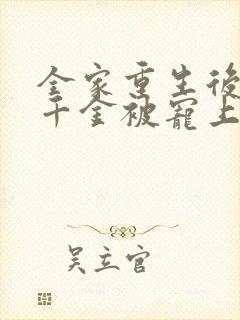 全家重生後
千金被寵上
吴立官